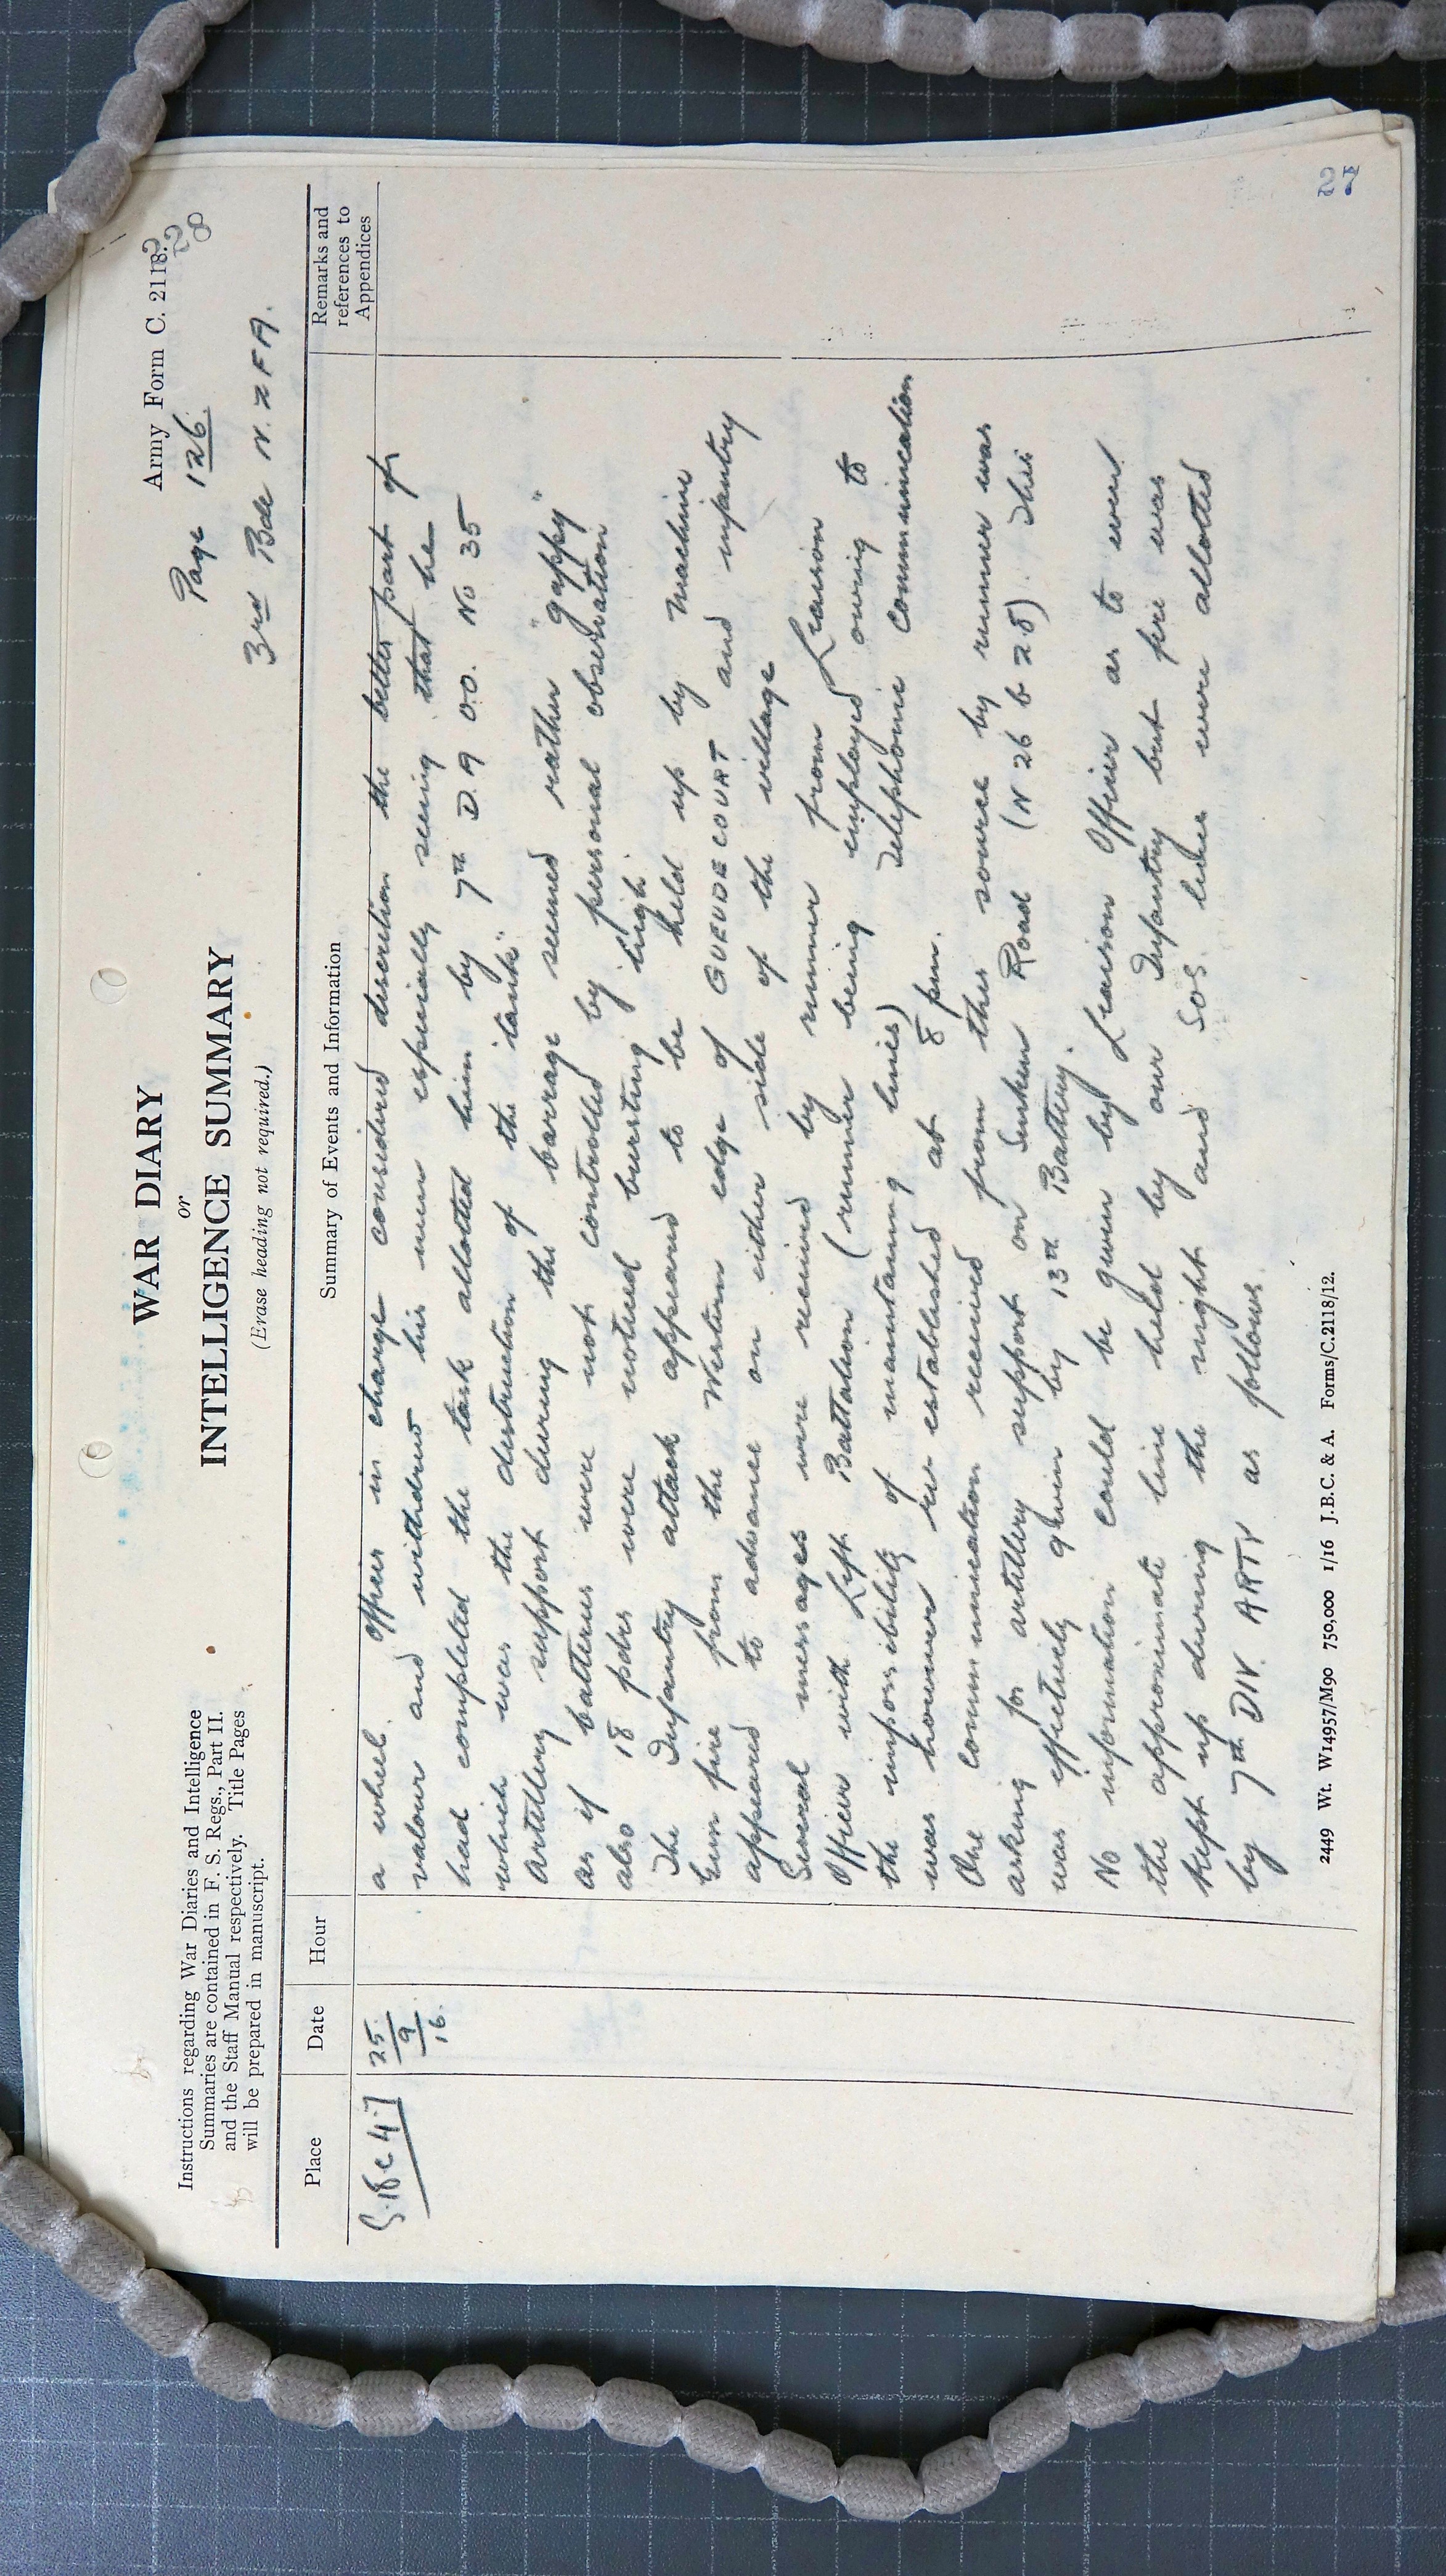 Army Form C. 2118.
228
Page 126.
3rd Bde N.Z.F.A.
WAR DIARY
or
INTELLIGENCE SUMMARY
(Erase heading not required.)
Instructions regarding War Diaries and Intelligence
Summaries are contained in F. S. Regs., Part II.
and the Staff Manual respectively. Title Pages
will be prepared in manuscript.
Place Date Hour Summary of Events and Information Remarks and references to Appendices
S.18c 4.7 25/9/16
a wheel. Officer in charge considered discretion the better part of
valour and withdrew his men especially seeing that he
had completed the task allotted him by 7th D.A O.O. No 35
which was the destruction of the "tanks"
Artillery support during the barrage seemed rather "gappy"
as if batteries were not controlled by personal observation
also 18 pdrs were noticed bursting high.
The Infantry attack appeared to be held up by Machine
Gun fire from the Western edge of GUEUDECOURT and infantry
appeared to advance on either side of the village
Several messages were received by runner from Liaison
Officer with Left Battalion (runner being employed owing to
the impossibility of maintaining lines) Telephonic communication
was however re-established at 8 pm.
One communication received from this source by runner was
asking for artillery support on Sunken Road (N 26 b 2.8). This
was effectively given by 13th Battery.
No information could be given by Liaison Officer as to even
the approximate line held by our Infantry but fire was
kept up during the night and S.O.S. lines were allotted
by 7th DIV. ARTY as follows.
2449 Wt. W14957/M90 750,000 1/16 J.B.C. & A. Forms/C.2118/12.
27